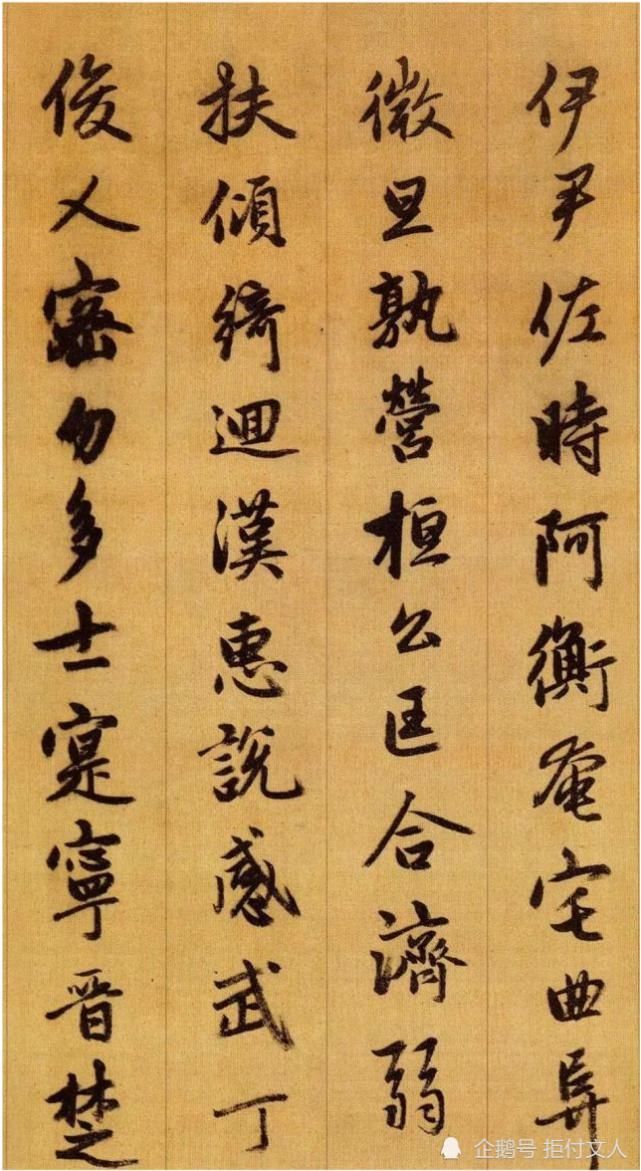 伊尹佐時阿衡奄宅曲阜
微旦孰營桓公匡合濟弱
扶傾綺迴漢惠説感武丁
俊乂密勿多士寔寧晉楚
企鹅号 拒付文人